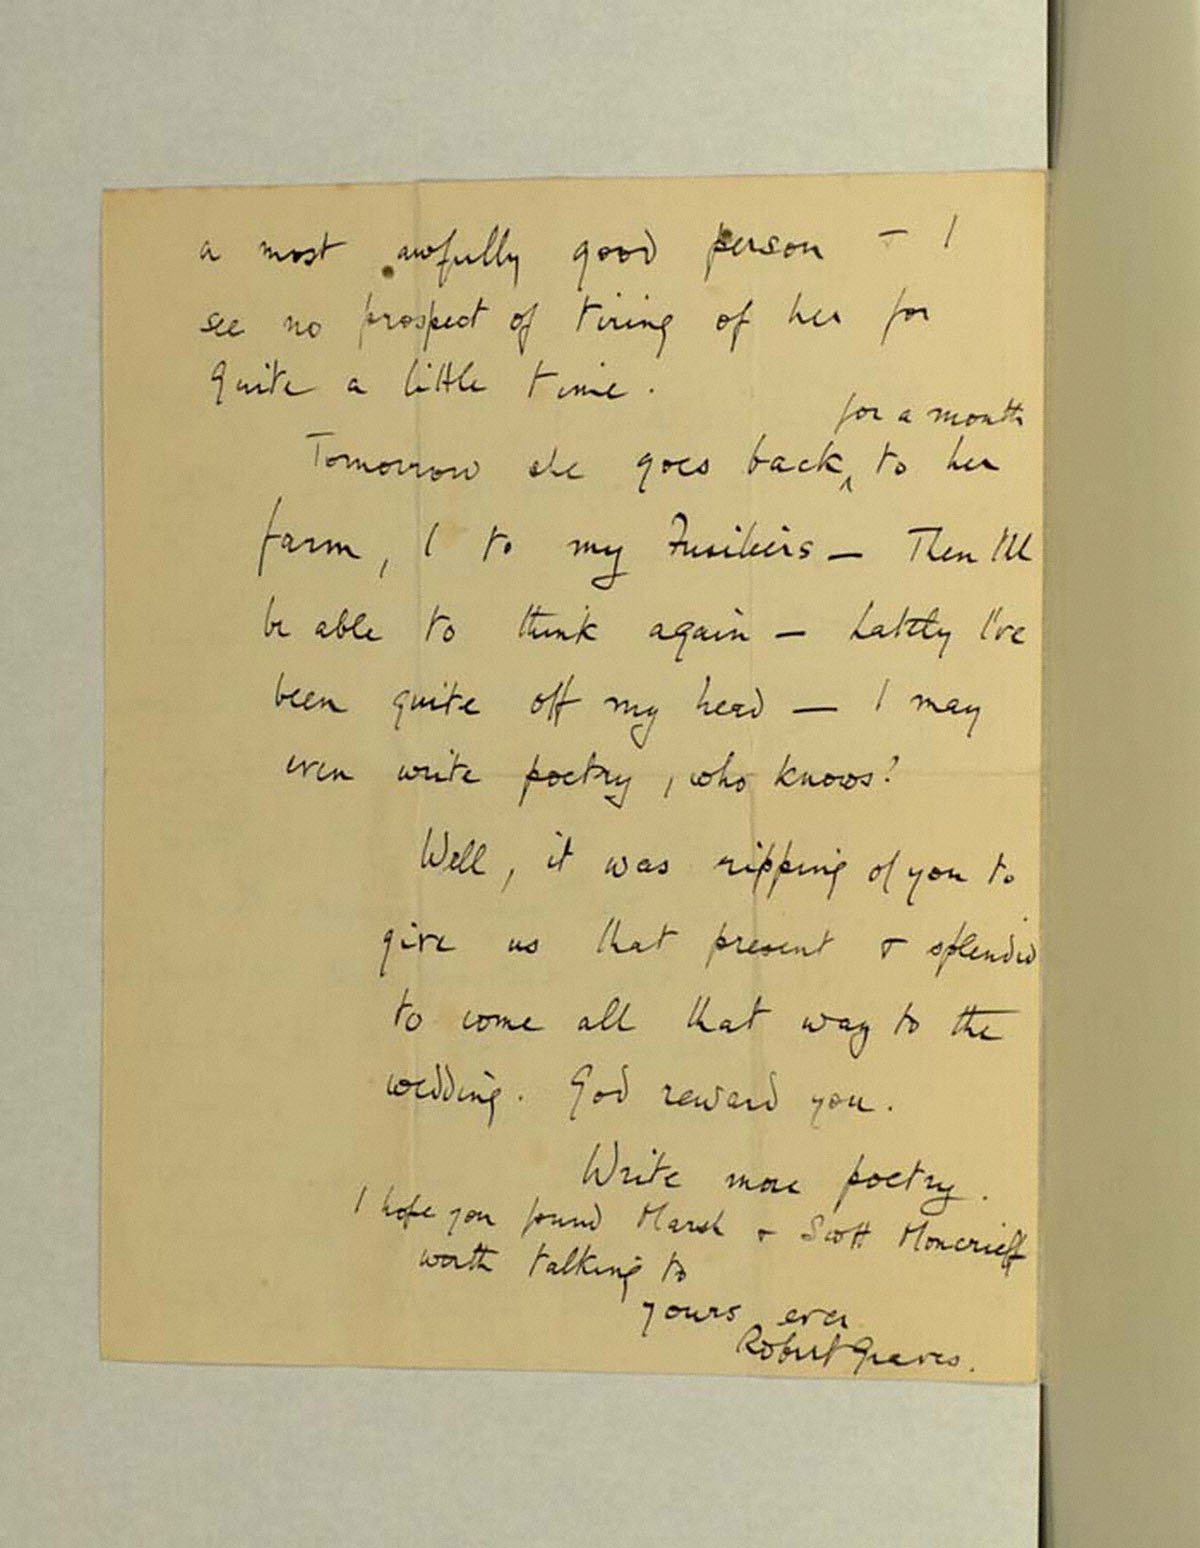 a most awfully good person & I
see no prospect of tiring of her for
quite a little time.
for a month
Tomorrow she goes back ^ to her
farm, I to my Fusiliers — Then I'll
be able to think again — Lately I've
been quite off my head — I may
even write poetry, who knows?
Well, it was ripping of you to
give us that present & splendid
to come all that way to the
wedding. God reward you.
Write more poetry.
I hope you found Marsh & Scott Moncrieff
worth talking to
yours ever
Robert Graves.